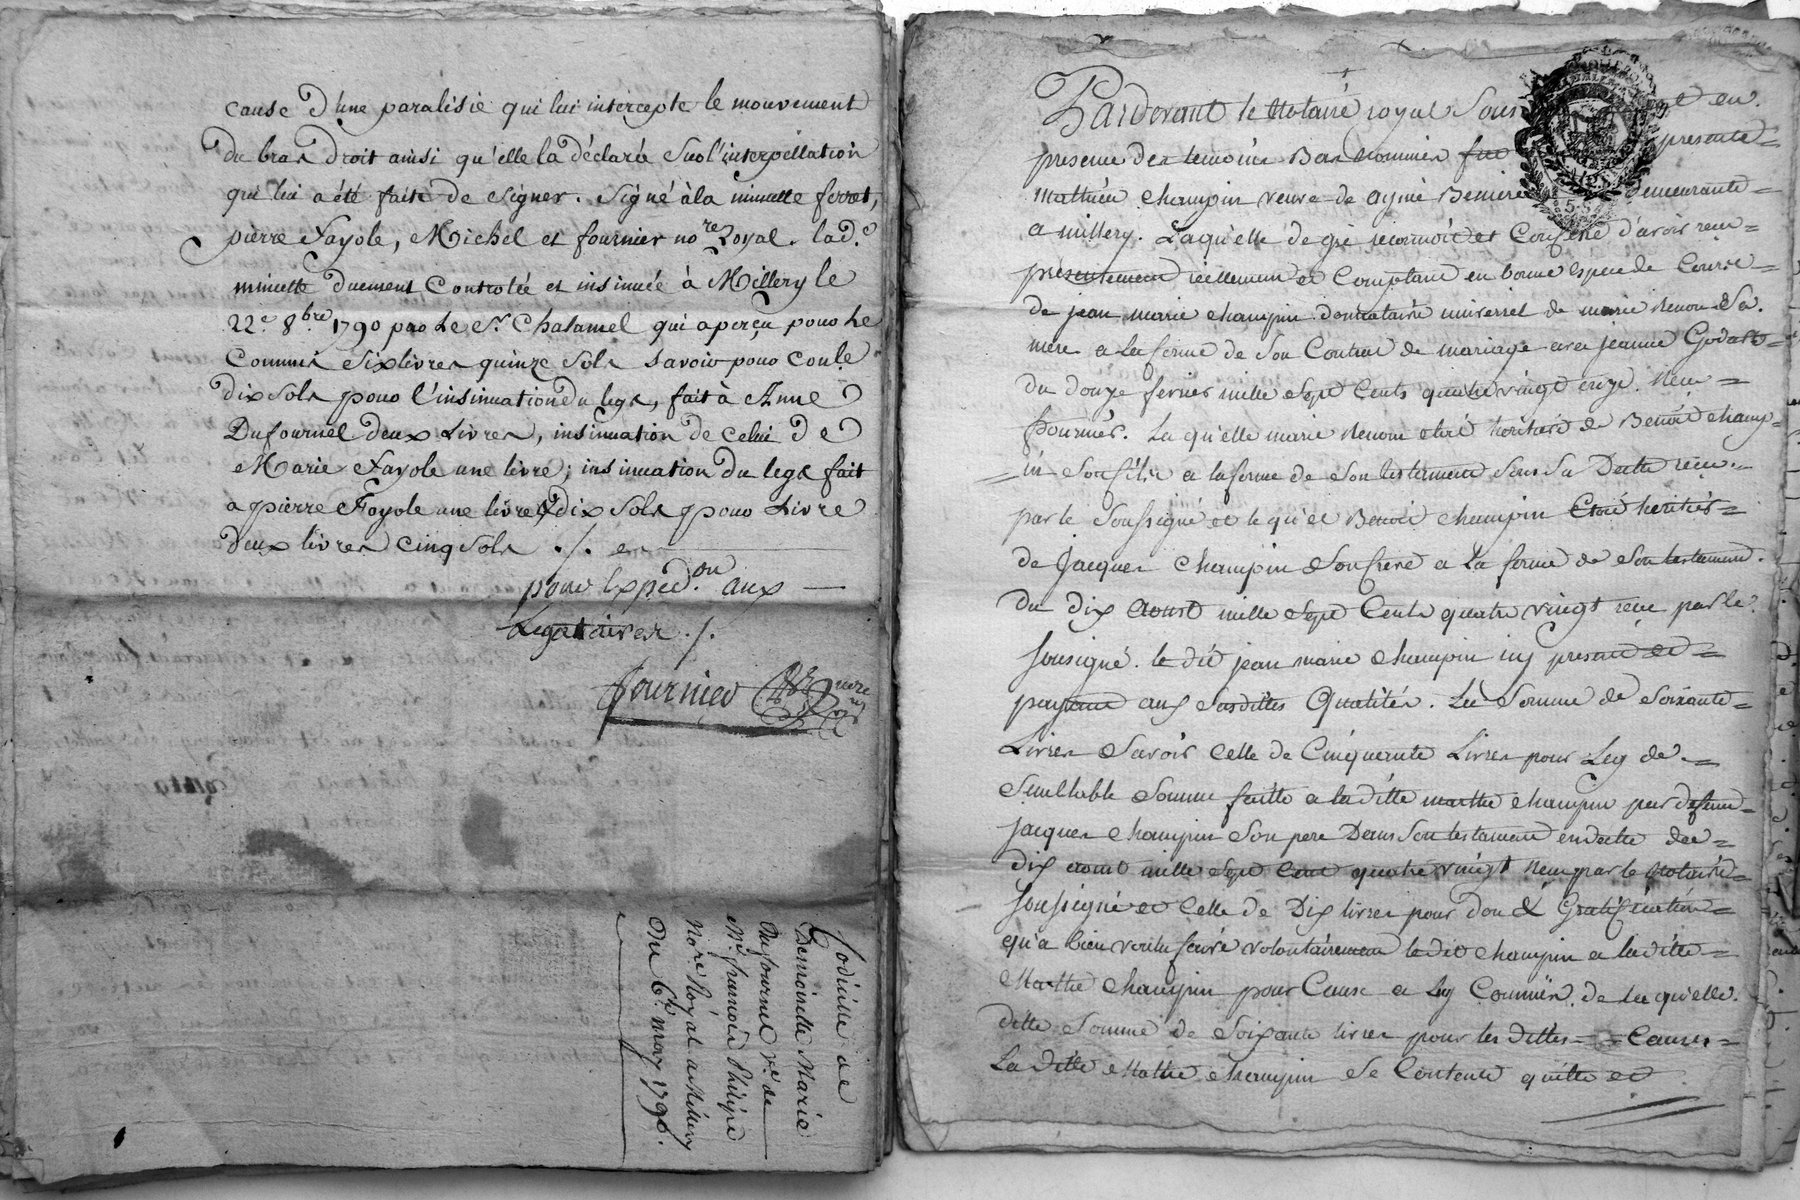 cause d'une paralisie qui lui intercepte le mouvement
du bras droit ainsi qu'elle la déclarée sur l'interpellation
qui lui a été faite de signer. signé à la minutte ferrat,
pierre Fayole, Michel et fournier no.re Royal. lad.e
minutte duement Controlée et insinuée à Millery le
22.e 8.bre 1790 par Le S.r Chalamel qui a perçu pour Le
Commis six livres quinze sols savoir pour conle
dix sols pour l'insinuation du legs, fait à Anne
Dufournel deux Livres, insinuation de celui de
Marie Fayole une livre; insinuation du legs fait
a pierre Fayole une livre dix sols pour Livre
deux livres cinq sols ./.
pour Expéd.on aux
Légataires ./.
fournier
Codicille de
Demoiselle Marie
Dufournel v.e de
M.e françois Philipe
No.re Royal a Millery
Du 6.e may 1790.
Pardevant le Notaire royal Sous
presence des temoins Bas nommés fut presente
Mathieu champin veuve de aymé demeurante
a millery. Laqu'elle de gré reconnoit et Confesse d'avoir reçu
présentement réellement et Comptant en bonne Espece de Cours
de jean marie champin donnataire universel de marie Renou Sa
mere a la forme de Son Contrat de mariage avec jeanne Godard
du douze fevrier mille Sept Cents quatre vingt onze. Reçu
fournier. La qu'elle marie Renou etoit heritiere de Benoît champ
in Son fils a la forme de Son testament Sous Sa Datte reçu
par le Soussigné et le qu'el Benoit champin Etoit heritier
de Jacques Champin Son frere a La forme de Son testament
du dix Aoust mille Sept Cents quatre vingt reçu par le
sousigné. le dit jean marie champin icy present et
payant aux Susdittes Qualités. La Somme de Soixante
Livres Savoir Celle de Cinquante Livres pour Leg de
Semblable Somme faitte a la ditte marthe champin par defunt
jacques champin Son pere Dans Son testament en datte du
dix aout mille Sept Cent quatre vingt Reçu par le Notaire
soussigné et Celle de Dix livres pour don & Gratification
qu'a bien voulu faire volontairement le dit champin a la ditte
Marthe Champin pour Cause a Luy Connüe. de La qu'elle
ditte Somme de Soixante livres pour les dittes Causes
La ditte Marthe champin Se Contente quitte et